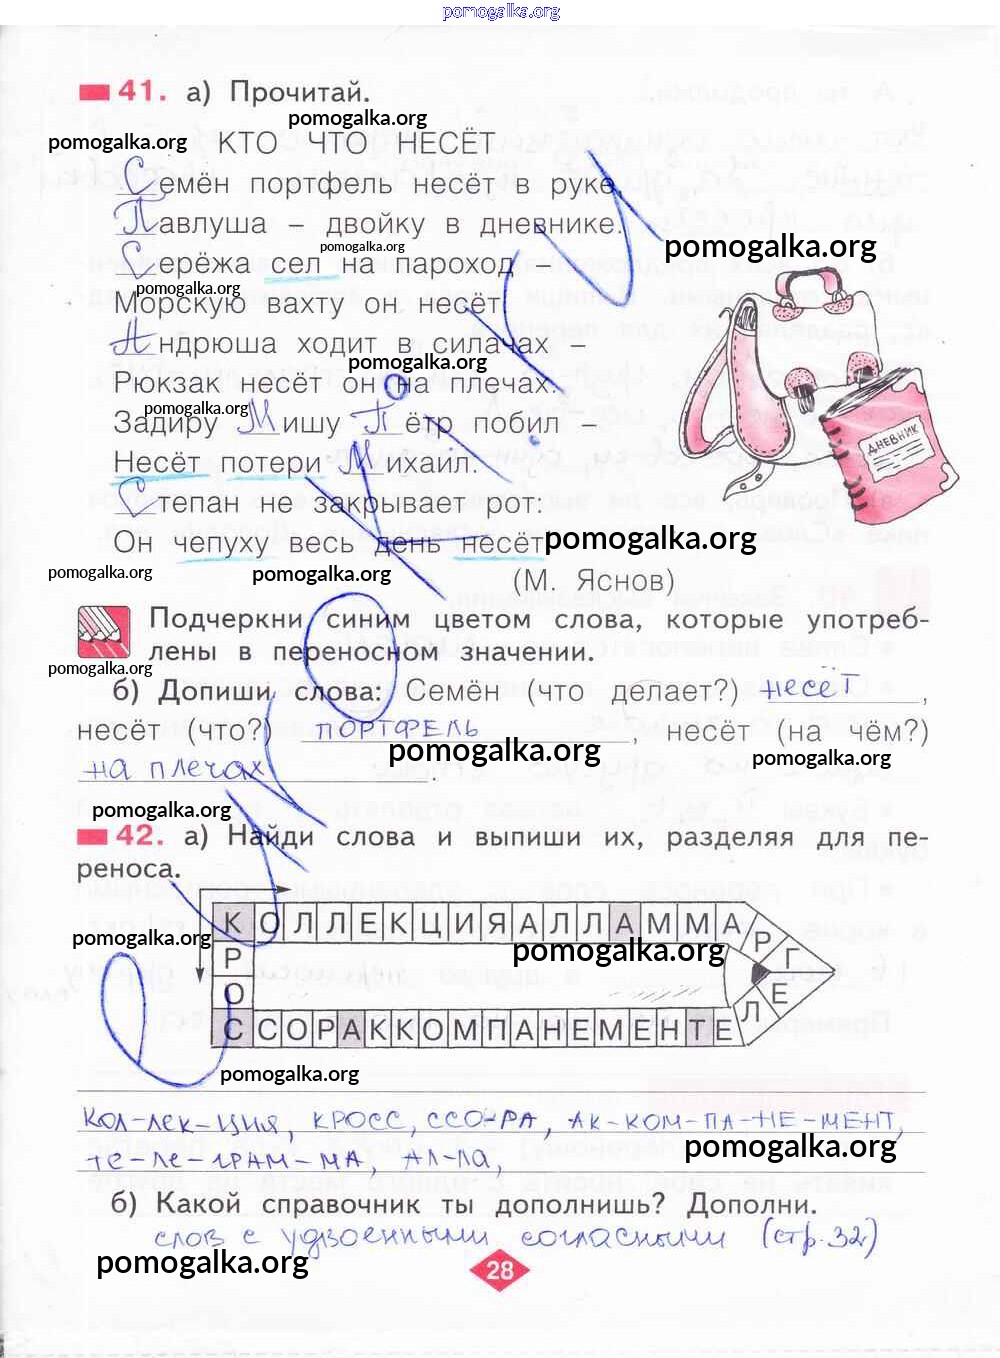 pomogalka.org
41. а) Прочитай.
pomogalka.org
pomogalka.org КТО ЧТО НЕСЁТ
Семён портфель несёт в руке,
Павлуша – двойку в дневнике.
pomogalka.org pomogalka.org
Серёжа сел на пароход –
pomogalka.org
Морскую вахту он несёт.
Андрюша ходит в силачах –
pomogalka.org
Рюкзак несёт он на плечах.
pomogalka.org
Задиру Мишу Пётр побил –
ДНЕВНИК
Несёт потери Михаил.
Степан не закрывает рот:
Он чепуху весь день несёт
pomogalka.org
pomogalka.org pomogalka.org (М. Яснов)
Подчеркни синим цветом слова, которые употреб-
лены в переносном значении.
pomogalka.org
б) Допиши слова: Семён (что делает?) несёт,
несёт (что?) портфель, несёт (на чём?)
pomogalka.org pomogalka.org
на плечах.
pomogalka.org
42. а) Найди слова и выпиши их, разделяя для пе-
реноса.
КОЛЛЕКЦИЯАЛЛАММА
pomogalka.org pomogalka.org
Р Р Г
О Е
ССОРАККОМПАНЕМЕНТЕ Л
С
pomogalka.org
кол-лек-ция, кросс, ссо-ра, ак-ком-па-не-мент,
pomogalka.org
те-ле-грам-ма, ал-ла,
б) Какой справочник ты дополнишь? Дополни.
слов с удвоенными согласными (стр. 32)
pomogalka.org 28 pomogalka.org